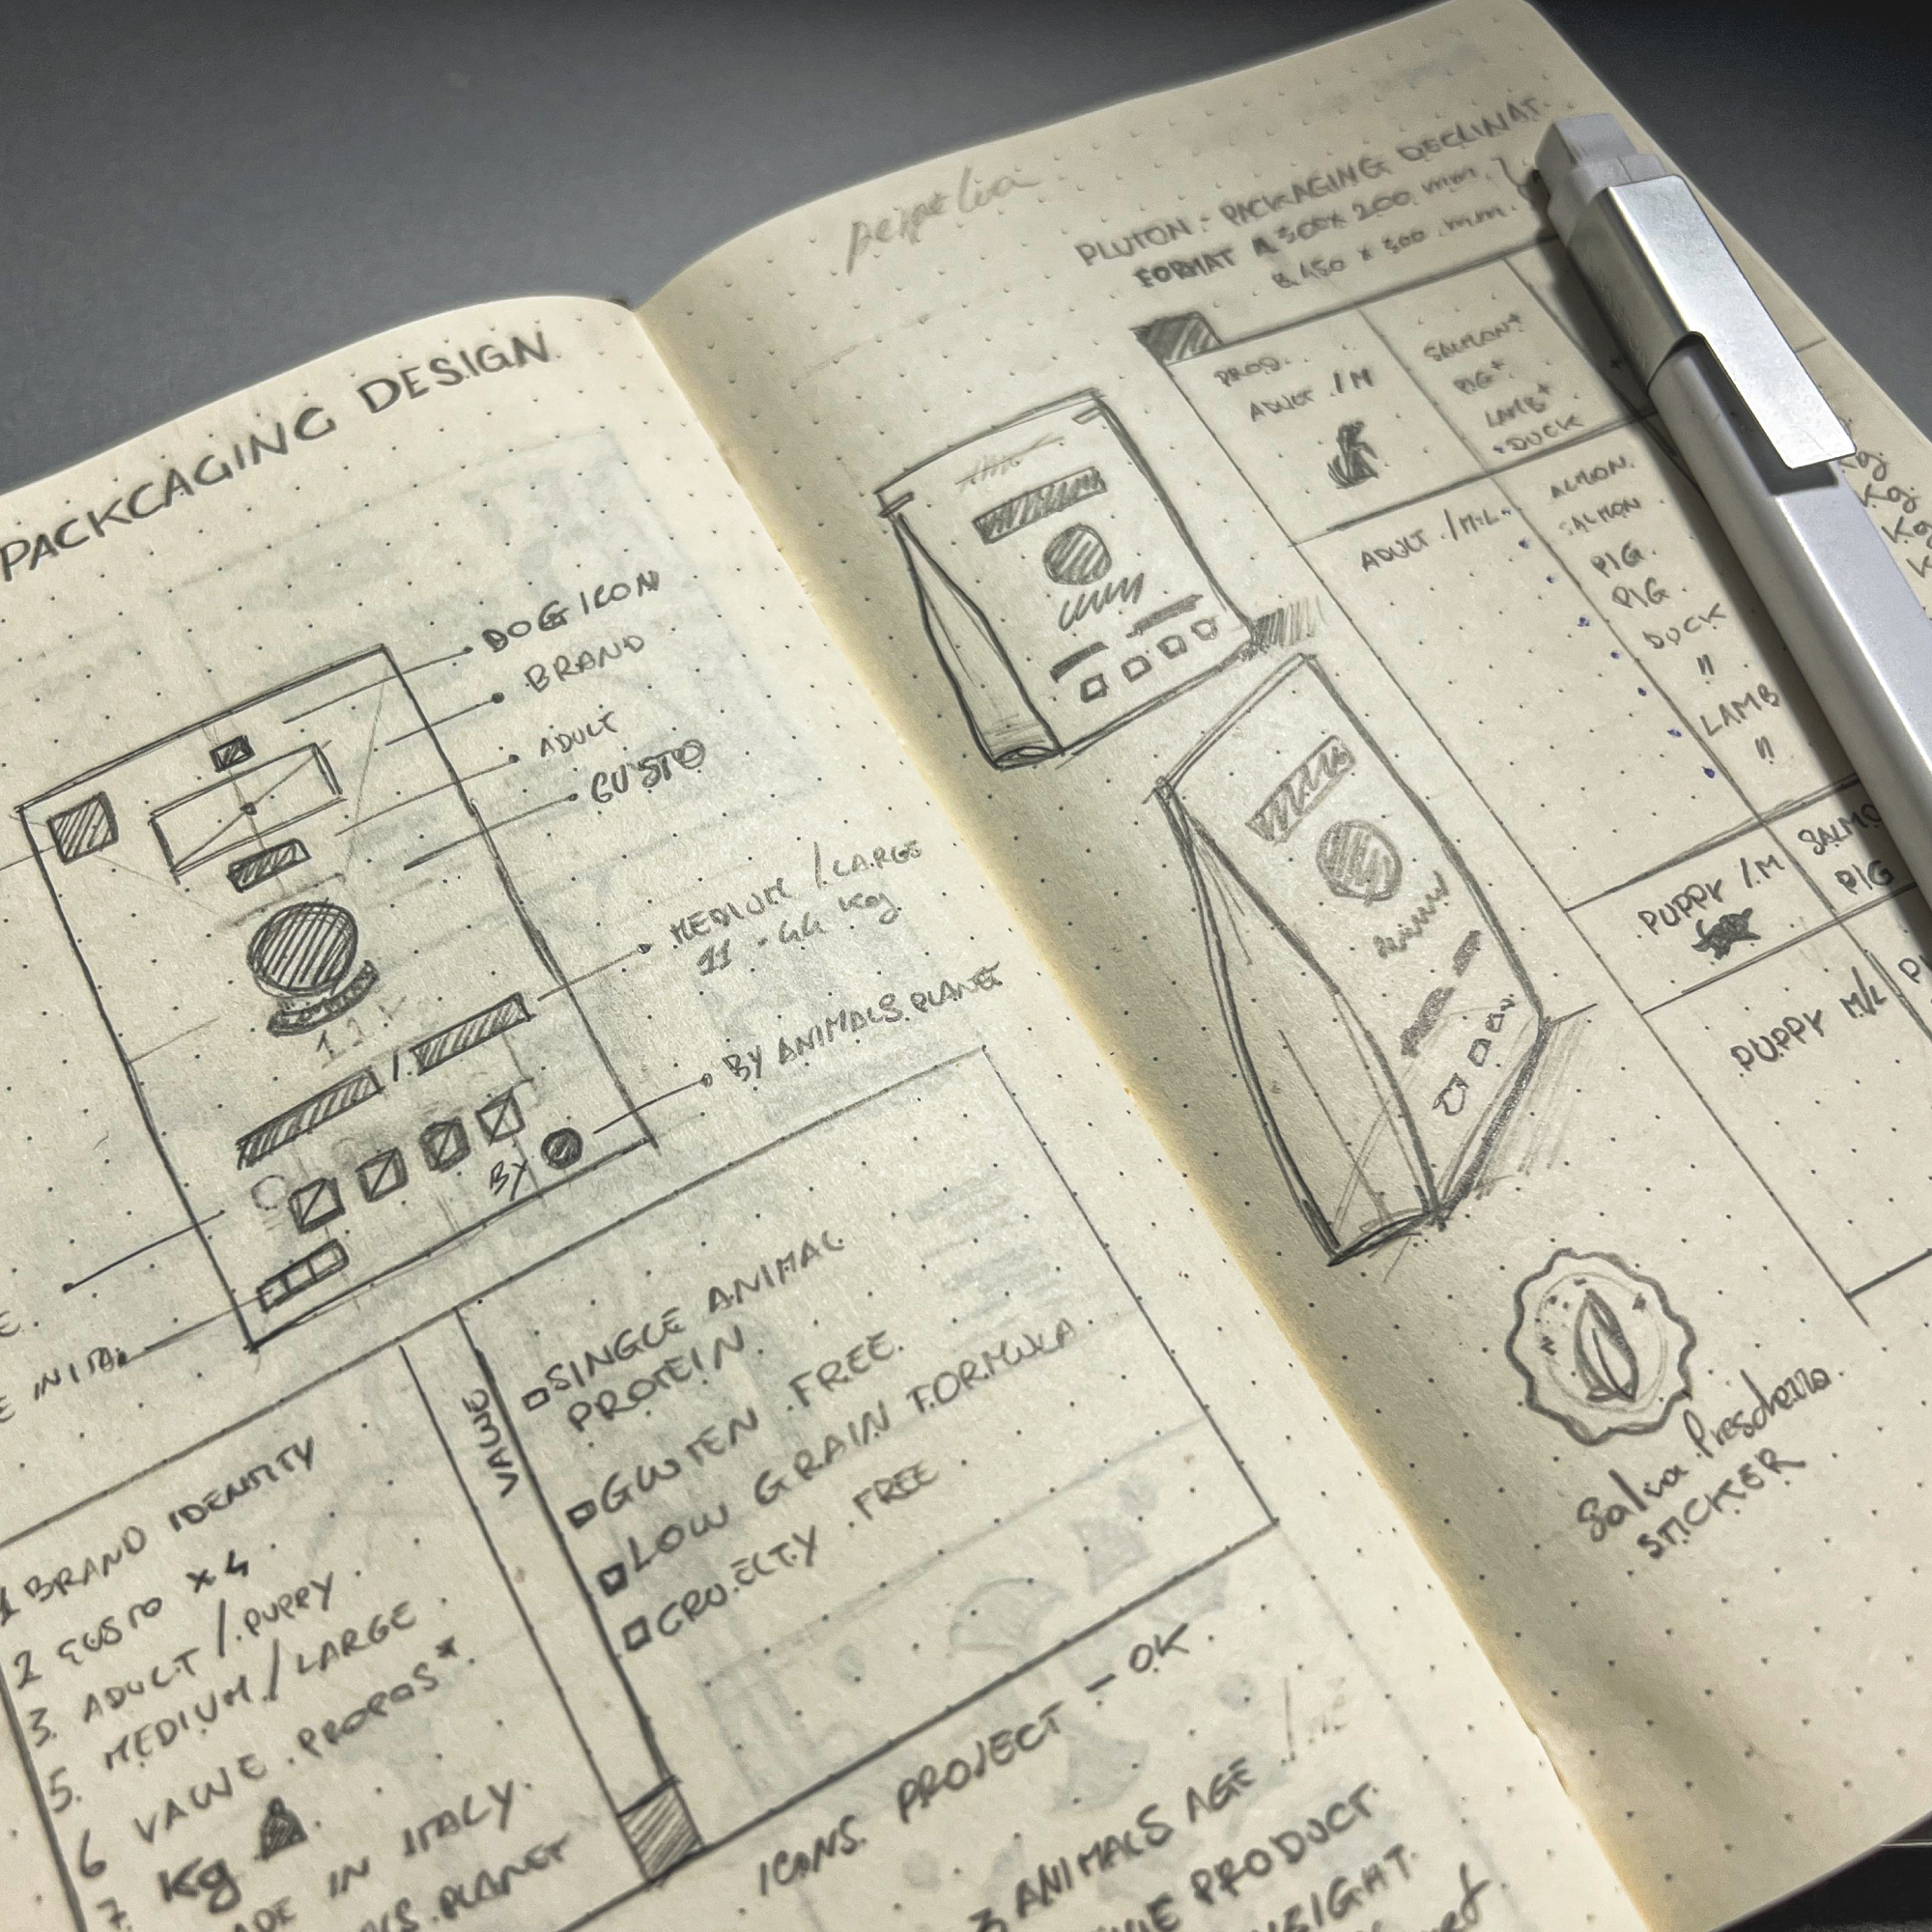 PACKCAGING DESIGN
DOG ICON
BRAND
ADULT
GUSTO
MEDIUM / LARGE
11 - 44 Kg
BY ANIMALS PLANET
BY
E IN ITA.
BRAND IDENTITY
1 BRAND
2 GUSTO x4
3. ADULT / PUPPY
5. MEDIUM / LARGE
6 VALUE PROPOS*
7. Kg
ADE IN ITALY.
PLANET
VALUE
SINGLE ANIMAL
PROTEIN.
GLUTEN FREE.
LOW GRAIN FORMULA
CRUELTY FREE
ICONS PROJECT - OK.
3 ANIMALS AGE
PRODUCT
PLUTON - PACKAGING DECLINAT.
FORMAT A 300x 200 mm.
B 450 x 300 mm.
PROD.
ADULT / M
SALMON+
PIG+
LAMB+
+DUCK
ADULT / M.L.
ALMON.
SALMON
PIG.
PIG.
DUCK
"
LAMB
"
Kg.
Kg.
PUPPY / M
SALMO
PIG
PUPPY M/L
Salva Freschezza
STICKER